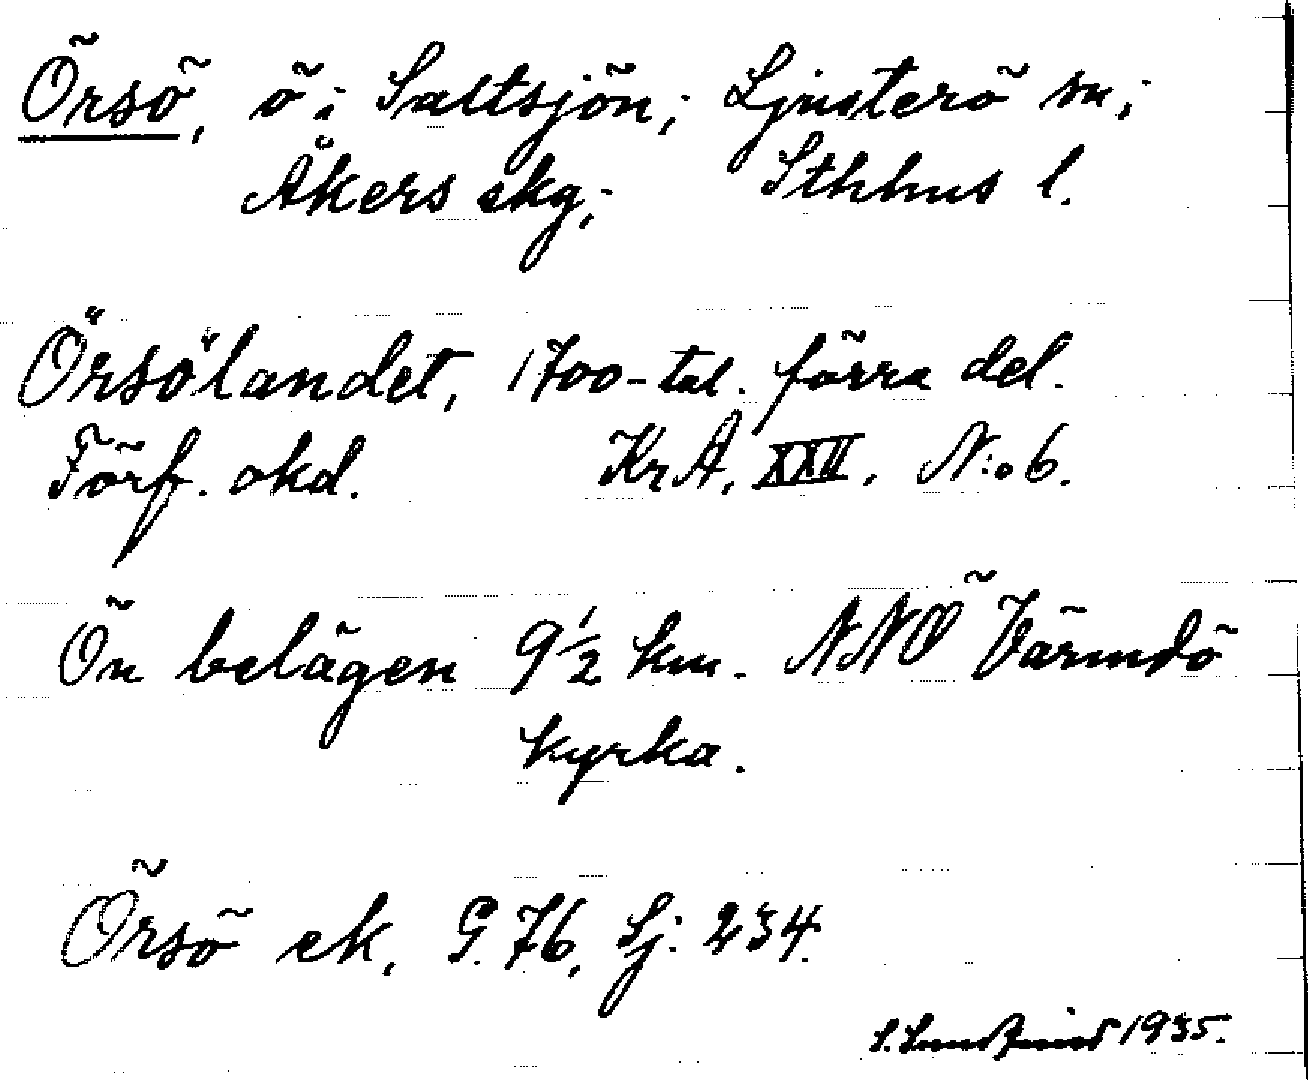 Örsö, ö i Saltsjön; Ljusterö sn;
Åkers skg; Sthhus l.
Örsölandet, 1700-tal. förra del.
Förf. okd. KrA, XXII, N:o 6.
Ön belägen 9 1/2 km. NNÖ Värmdö
kyrka.
Örsö ek, G. 76, Sj: 234.
S. 1935.